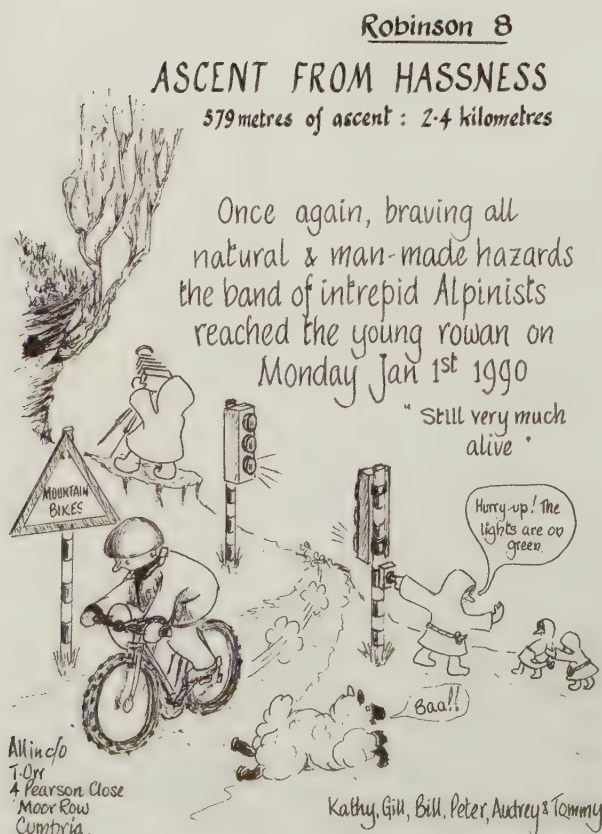 Robinson 8
ASCENT FROM HASSNESS
579 metres of ascent : 2.4 kilometres
Once again, braving all
natural & man-made hazards
the band of intrepid Alpinists
reached the young rowan on
Monday Jan 1st 1990
"Still very much
alive"
MOUNTAIN
BIKES
Hurry up! The
lights are on
green.
Baa!!
All in c/o
T. Orr
4 Pearson Close
Moor Row
Cumbria.
Kathy, Gill, Bill, Peter, Audrey & Tommy